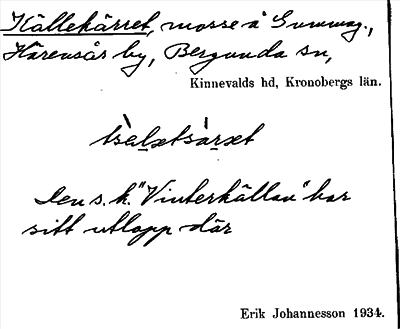 Källekärret, mosse å Gunnag.,
Härensås by, Bergunda sn,
Kinnevalds hd, Kronobergs län.
Den s. k. "Vinterkällan" har
sitt utlopp där
Erik Johannesson 1934.